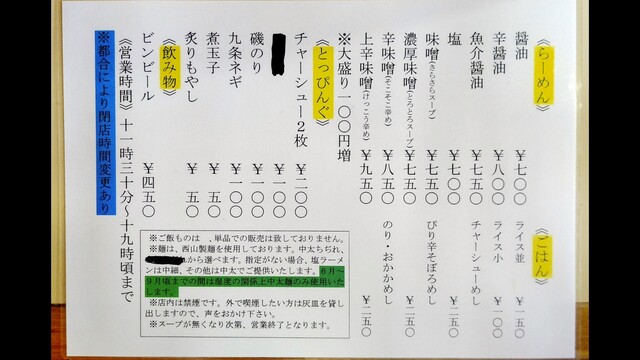 《らーめん》
醤油 ￥七〇〇
辛醤油 ￥八〇〇
魚介醤油 ￥七五〇
塩 ￥七〇〇
味噌(さらさらスープ) ￥七五〇
濃厚味噌(とろとろスープ) ￥七五〇
辛味噌(そこそこ辛め) ￥八五〇
上辛味噌(けっこう辛め) ￥九五〇
※大盛り一〇〇円増
《ごはん》
ライス並 ￥一五〇
ライス小 ￥一〇〇
チャーシューめし ￥二五〇
ぴり辛そぼろめし ￥二五〇
のり・おかかめし ￥二五〇
《とっぴんぐ》
チャーシュー2枚 ￥二〇〇
￥一〇〇
磯のり ￥一〇〇
九条ネギ ￥一〇〇
煮玉子 ￥五〇
炙りもやし ￥五〇
《飲み物》
ビンビール ￥四五〇
《営業時間》十一時三十分～十九時頃まで
※都合により閉店時間変更あり
※ご飯ものは、単品での販売は致しておりません。
※麺は、西山製麺を使用しております。中太ちぢれ、
から選べます。指定がない場合、塩ラーメ
ンは中細、その他は中太でご提供いたします。6月～
9月頃までの間は湿度の関係上中太麺のみ使用いた
します。
※店内は禁煙です。外で喫煙したい方は灰皿を貸し
出しますので、声をおかけ下さい。
※スープが無くなり次第、営業終了となります。